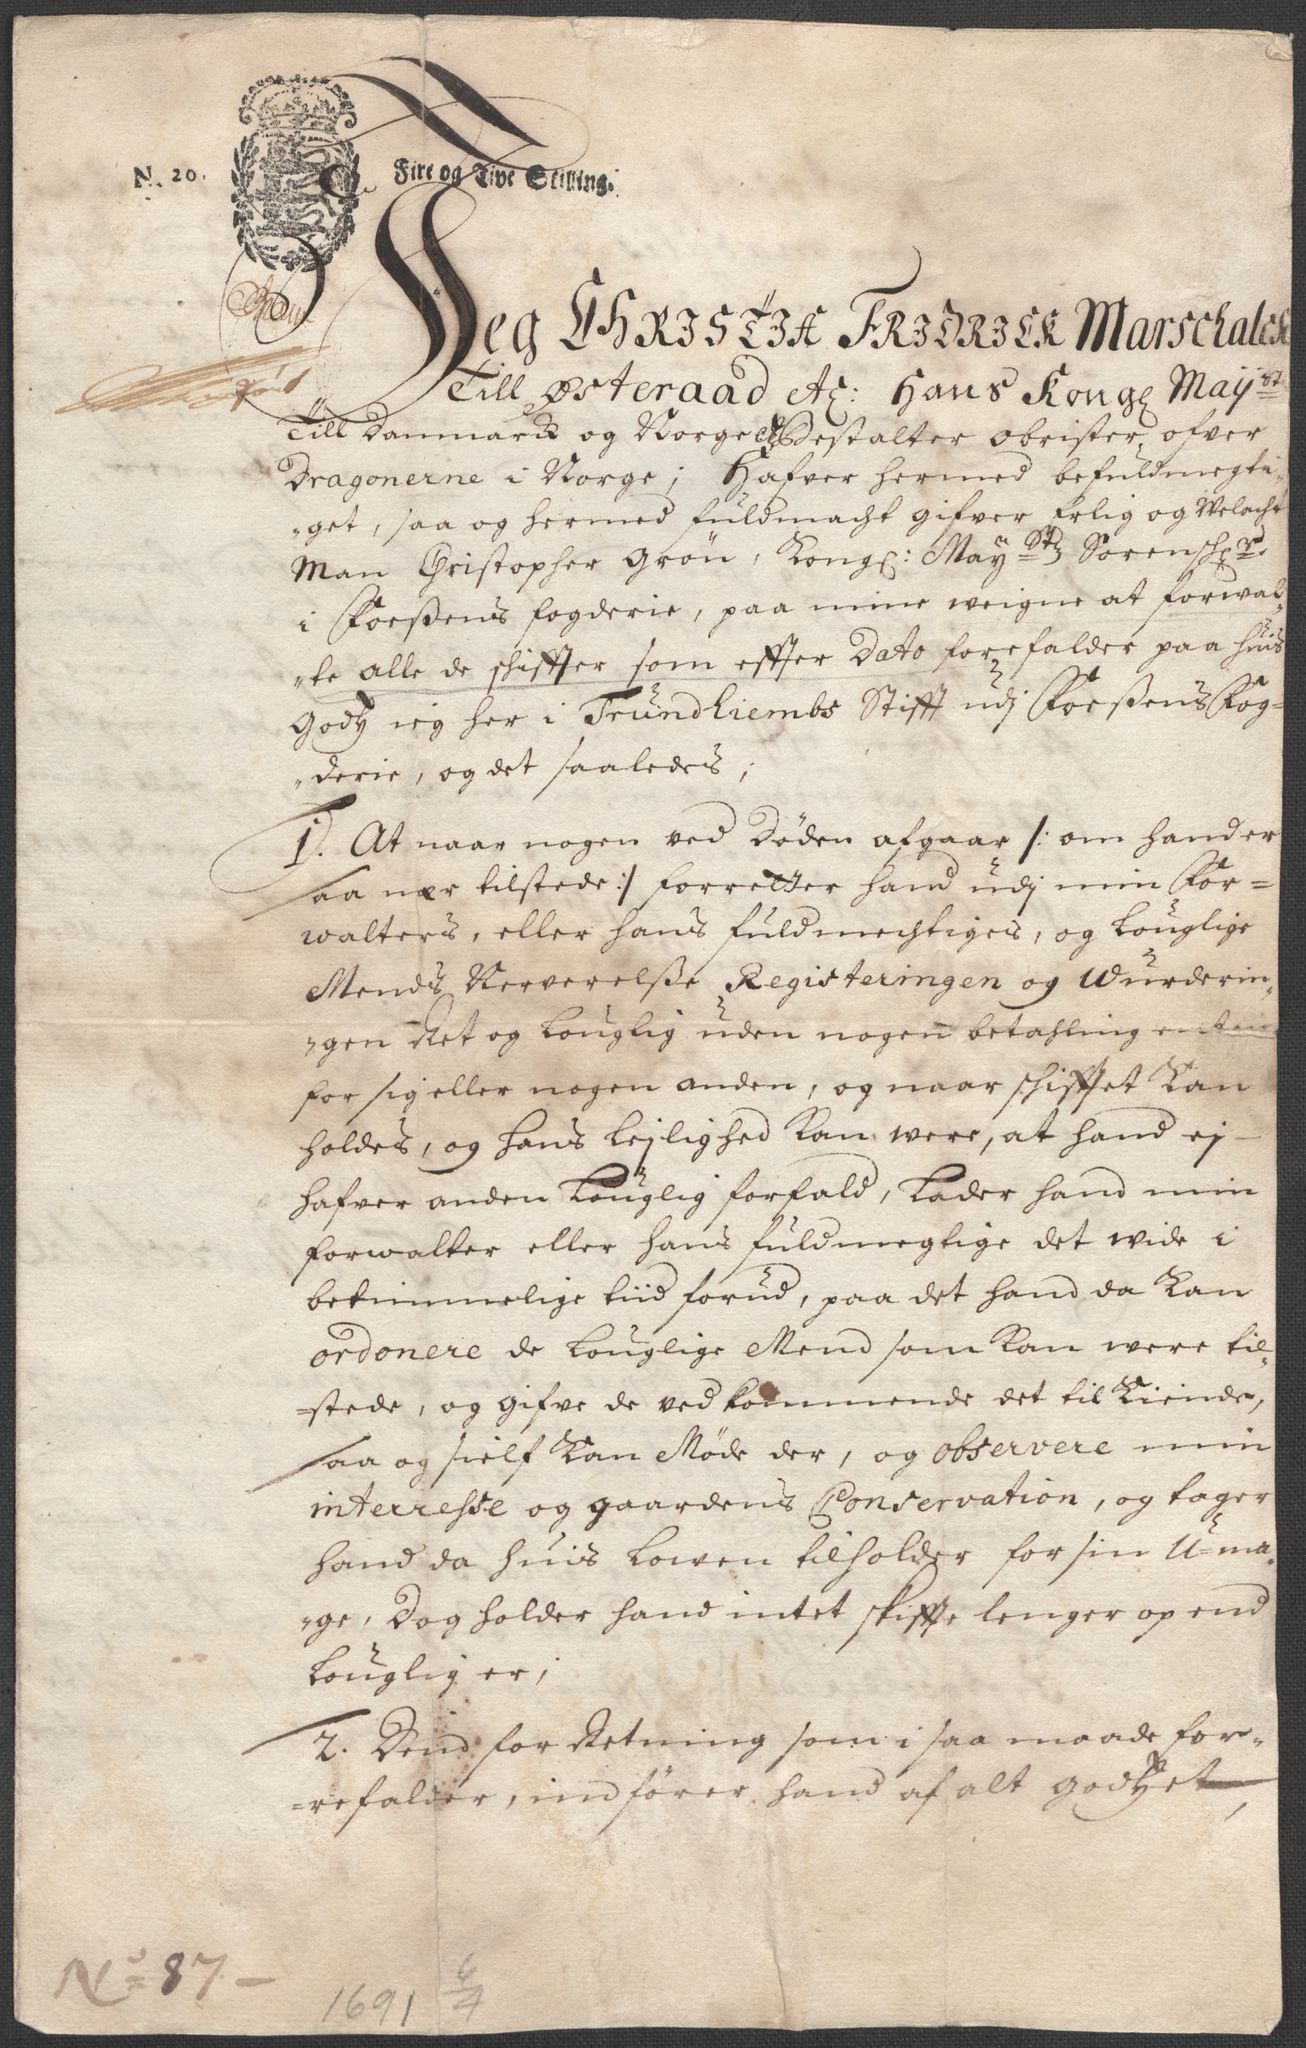 N. 20. Fire og Tive Skilling.
Jeg CHRISTIA FRIDRICK Marschalck
Till Østeraad Ac: Hans Kong May st
Till Danmarck og Norge Bestalter obrister ofver
Dragonerne i Norge; Hafver hermed befuldmegti-
-get, saa og hermed fuldmacht gifver Erlig og Velacht
Man Christopher Grøn, Kong: May st Sorenschr
i Foeßens fogderie, paa mine weigne at forwal-
-te alle de schiffter som effter Dato forefalder paa huis
Gods ieg her i Trundhiembs Stifft udj Foeßens Fog-
-derie, og det saaledes;
1. At naar nogen ved Døden afgaar /: om hand er
saa nær tilstede :/ forretter hand udj min For-
walters, eller hans fuldmechtiges, og Louglige
Mends Nerverelße Registeringen og Wurderin-
-gen Ret og Louglig uden nogen betahling enten
for sig eller nogen anden, og naar schifftet Kan
holdes, og hans lejlighed Kan were, at hand ej
hafver anden Louglig forfald, Lader hand min
forwalter eller hans fuldmegtige det wide i
betimmelige tiid forud, paa det hand da Kan
ordonere de Louglige Mend som Kan were til-
-stede, og gifve de vedkommende det til Kiende,
saa og sielf Kan Møde der, og observere min
interresse og gaardens Conservation, og tager
hand da huis Lowen tilholder for sin U-ma-
-ge, Dog holder hand intet skiffte lenger op end
Louglig er;
2. Dend for Retning som i saa maade for-
-refalder, indfører hand af alt godset
No 87
1691 6/4